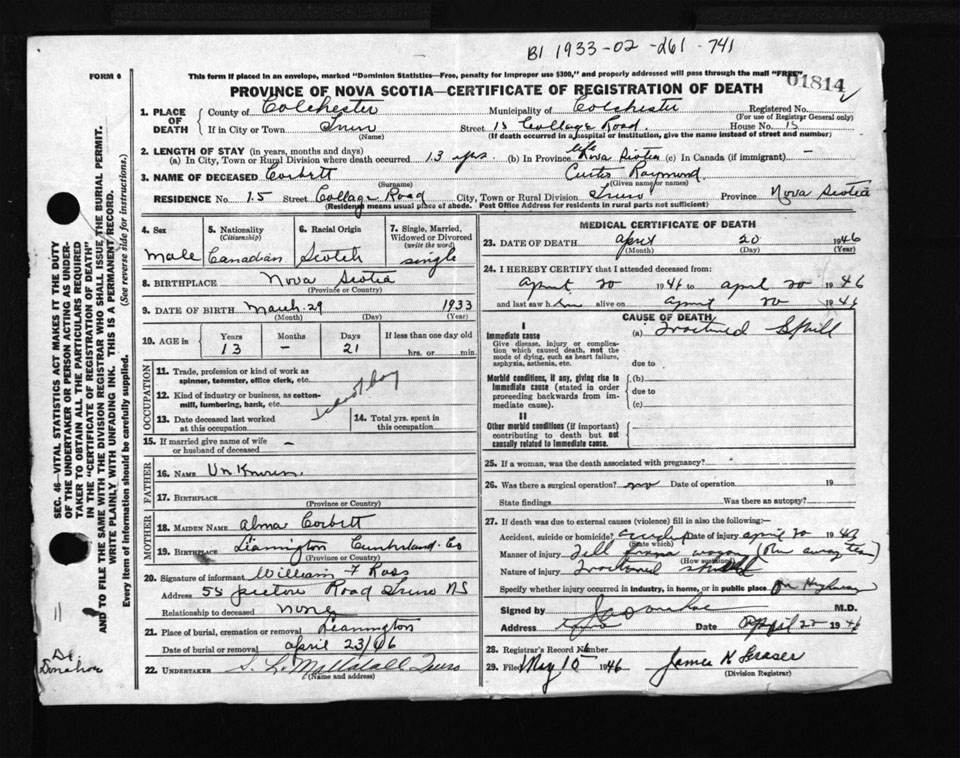 B1 1933-02-261-741
FORM 6
This form if placed in an envelope, marked "Dominion Statistics—Free, penalty for improper use $300," and properly addressed will pass through the mail "FREE"
01814
PROVINCE OF NOVA SCOTIA—CERTIFICATE OF REGISTRATION OF DEATH
1. PLACE OF DEATH County of Colchester Municipality of Colchester Registered No.
(For use of Registrar General only)
If in City or Town Truro Street 15 Collage Road. House No. 15
(Name) (If death occurred in a hospital or institution, give the name instead of street and number)
2. LENGTH OF STAY (in years, months and days)
(a) In City, Town or Rural Division where death occurred 13 yrs. (b) In Province life Nova Scotia (c) In Canada (if immigrant) —
3. NAME OF DECEASED Corbett Curtis Raymond.
(Surname) (Given name or names)
RESIDENCE No. 15 Street Collage Road City, Town or Rural Division Truro Province Nova Scotia
(Residence means usual place of abode. Post Office Address for residents in rural parts not sufficient)
4. Sex
Male
5. Nationality
(Citizenship)
Canadian
6. Racial Origin
Scotch
7. Single, Married, Widowed or Divorced
(write the word)
single
8. BIRTHPLACE Nova Scotia
(Province or Country)
9. DATE OF BIRTH March 29 1933
(Month) (Day) (Year)
10. AGE in Years Months Days If less than one day
13 — 21 hrs. or min.
OCCUPATION
11. Trade, profession or kind of work as spinner, teamster, office clerk, etc.
12. Kind of industry or business, as cotton-mill, lumbering, bank, etc.
School boy
13. Date deceased last worked at this occupation
14. Total yrs. spent in this occupation
15. If married give name of wife or husband of deceased —
FATHER
16. NAME Unknown
17. BIRTHPLACE
(Province or Country)
MOTHER
18. MAIDEN NAME Alma Corbett
19. BIRTHPLACE Leamington Cumberland Co
(Province or Country)
20. Signature of informant William F Ross
Address 55 Road Truro NS
Relationship to deceased none
21. Place of burial, cremation or removal Leamington
Date of burial or removal April 23/46
22. UNDERTAKER Truro
(Name and address)
MEDICAL CERTIFICATE OF DEATH
23. DATE OF DEATH April 20 1946
(Month) (Day) (Year)
24. I HEREBY CERTIFY that I attended deceased from:
April 20 1946 to April 20 1946
and last saw him alive on April 20 1946
CAUSE OF DEATH
I
Immediate cause
Give disease, injury or complication which caused death, not the mode of dying, such as heart failure, asphyxia, asthenia, etc.
(a) Fractured Skull
due to
Morbid conditions, if any, giving rise to immediate cause (stated in order proceeding backwards from immediate cause).
(b)
due to
(c)
II
Other morbid conditions (if important) contributing to death but not causally related to immediate cause.
25. If a woman, was the death associated with pregnancy?
26. Was there a surgical operation? no Date of operation 19
State findings Was there an autopsy?
27. If death was due to external causes (violence) fill in also the following:
Accident, suicide or homicide? Date of injury April 20 1946
(State which)
Manner of injury Fell from wagon (Run away team)
(How sustained)
Nature of injury Fractured skull
Specify whether injury occurred in industry, in home, or in public place On Highway
Signed by M.D.
Address Date April 22 1946
28. Registrar's Record Number
29. Filed May 10 1946 James K Fraser
(Division Registrar)
SEC. 46—VITAL STATISTICS ACT MAKES IT THE DUTY
OF THE UNDERTAKER OR PERSON ACTING AS UNDERTAKER TO OBTAIN ALL THE PARTICULARS REQUIRED
IN THE "CERTIFICATE OF REGISTRATION OF DEATH"
AND TO FILE THE SAME WITH THE DIVISION REGISTRAR WHO SHALL ISSUE THE BURIAL PERMIT.
WRITE PLAINLY WITH UNFADING INK. THIS IS A PERMANENT RECORD.
Every item of information should be carefully supplied. (See reverse side for instructions.)
11
Dr.
Donahoe